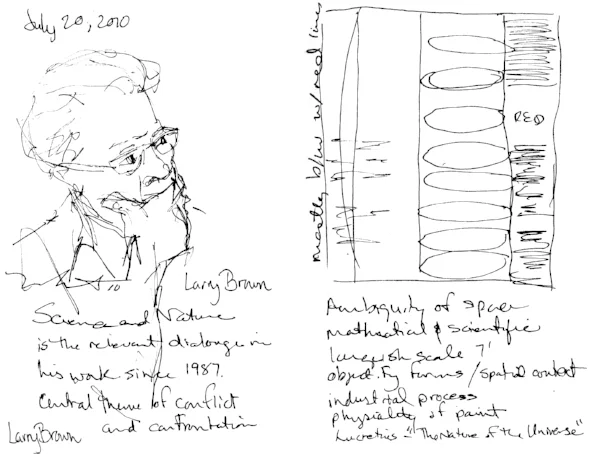 July 20, 2010
Larry Brown
Science and Nature
is the relevant dialonge in
his work since 1987.
Central theme of conflict
and confrontation
Larry Brown
mostly b/w w/ real lines
RED
Ambiguity of space
mathmatical & scientific
largeish scale 7'
objectify forms / spatial context
industrial process
physicality of paint
Lucretius - "The Nature of the Universe"